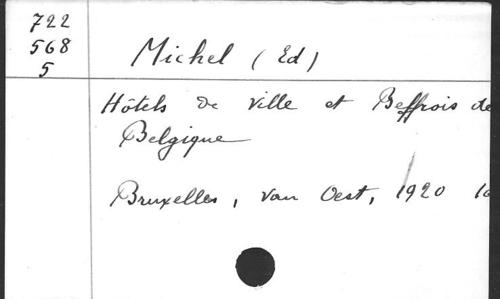 722
568
5
Michel (Ed)
Hôtels de Ville et Beffrois de
Belgique
Bruxelles, Van Oest, 1920